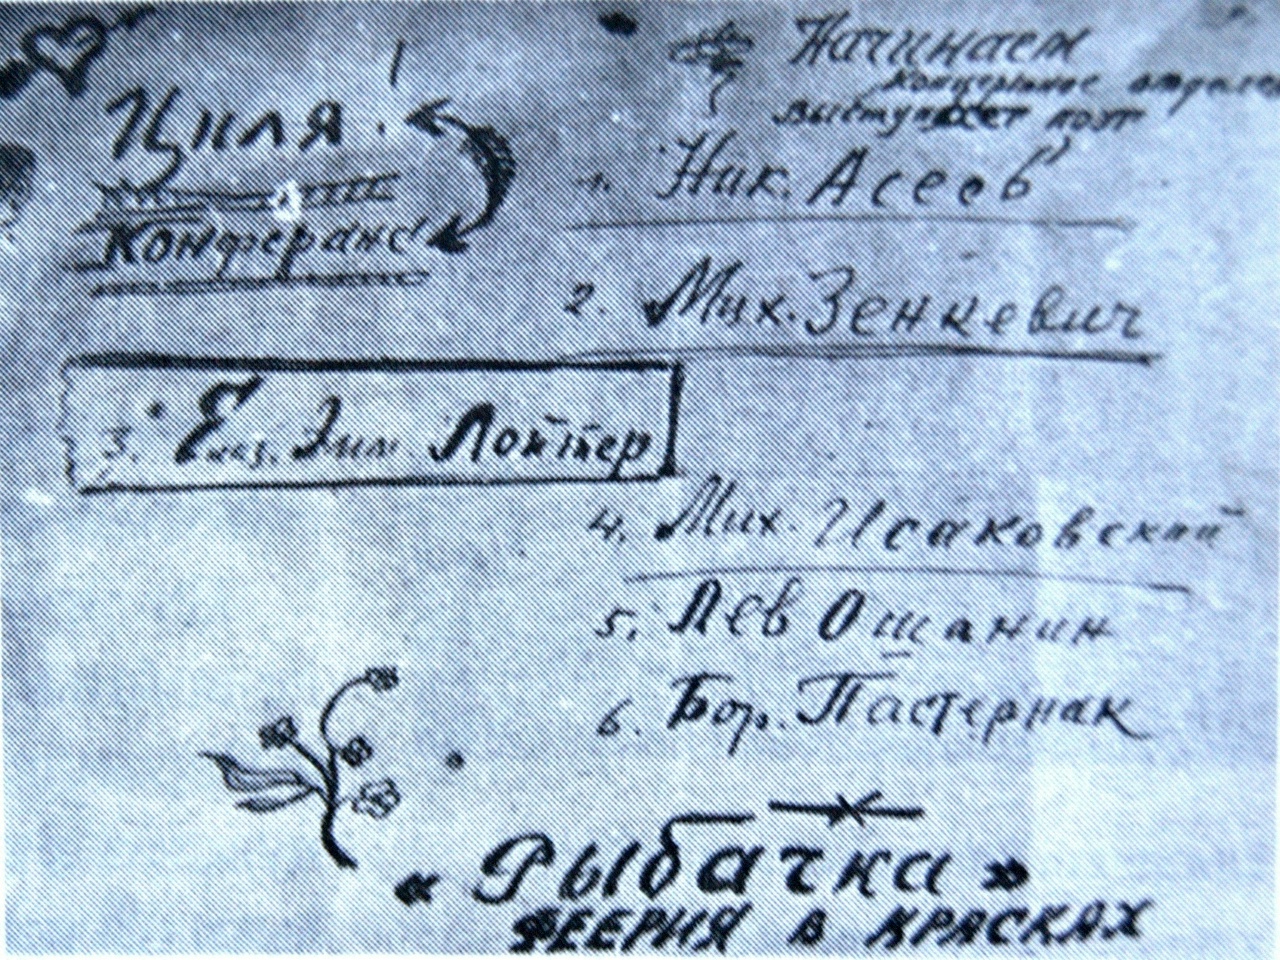 Циля.
Конферанс
Начинаем
концертное
выступает поэт
1. Ник. Асеев
2. Мих. Зенкевич
3. Елиз. Эмм. Лойтер
4. Мих. Исаковский
5. Лев Ошанин
6. Бор. Пастернак
« Рыбачка »
ФЕЕРИЯ В КРАСКАХ